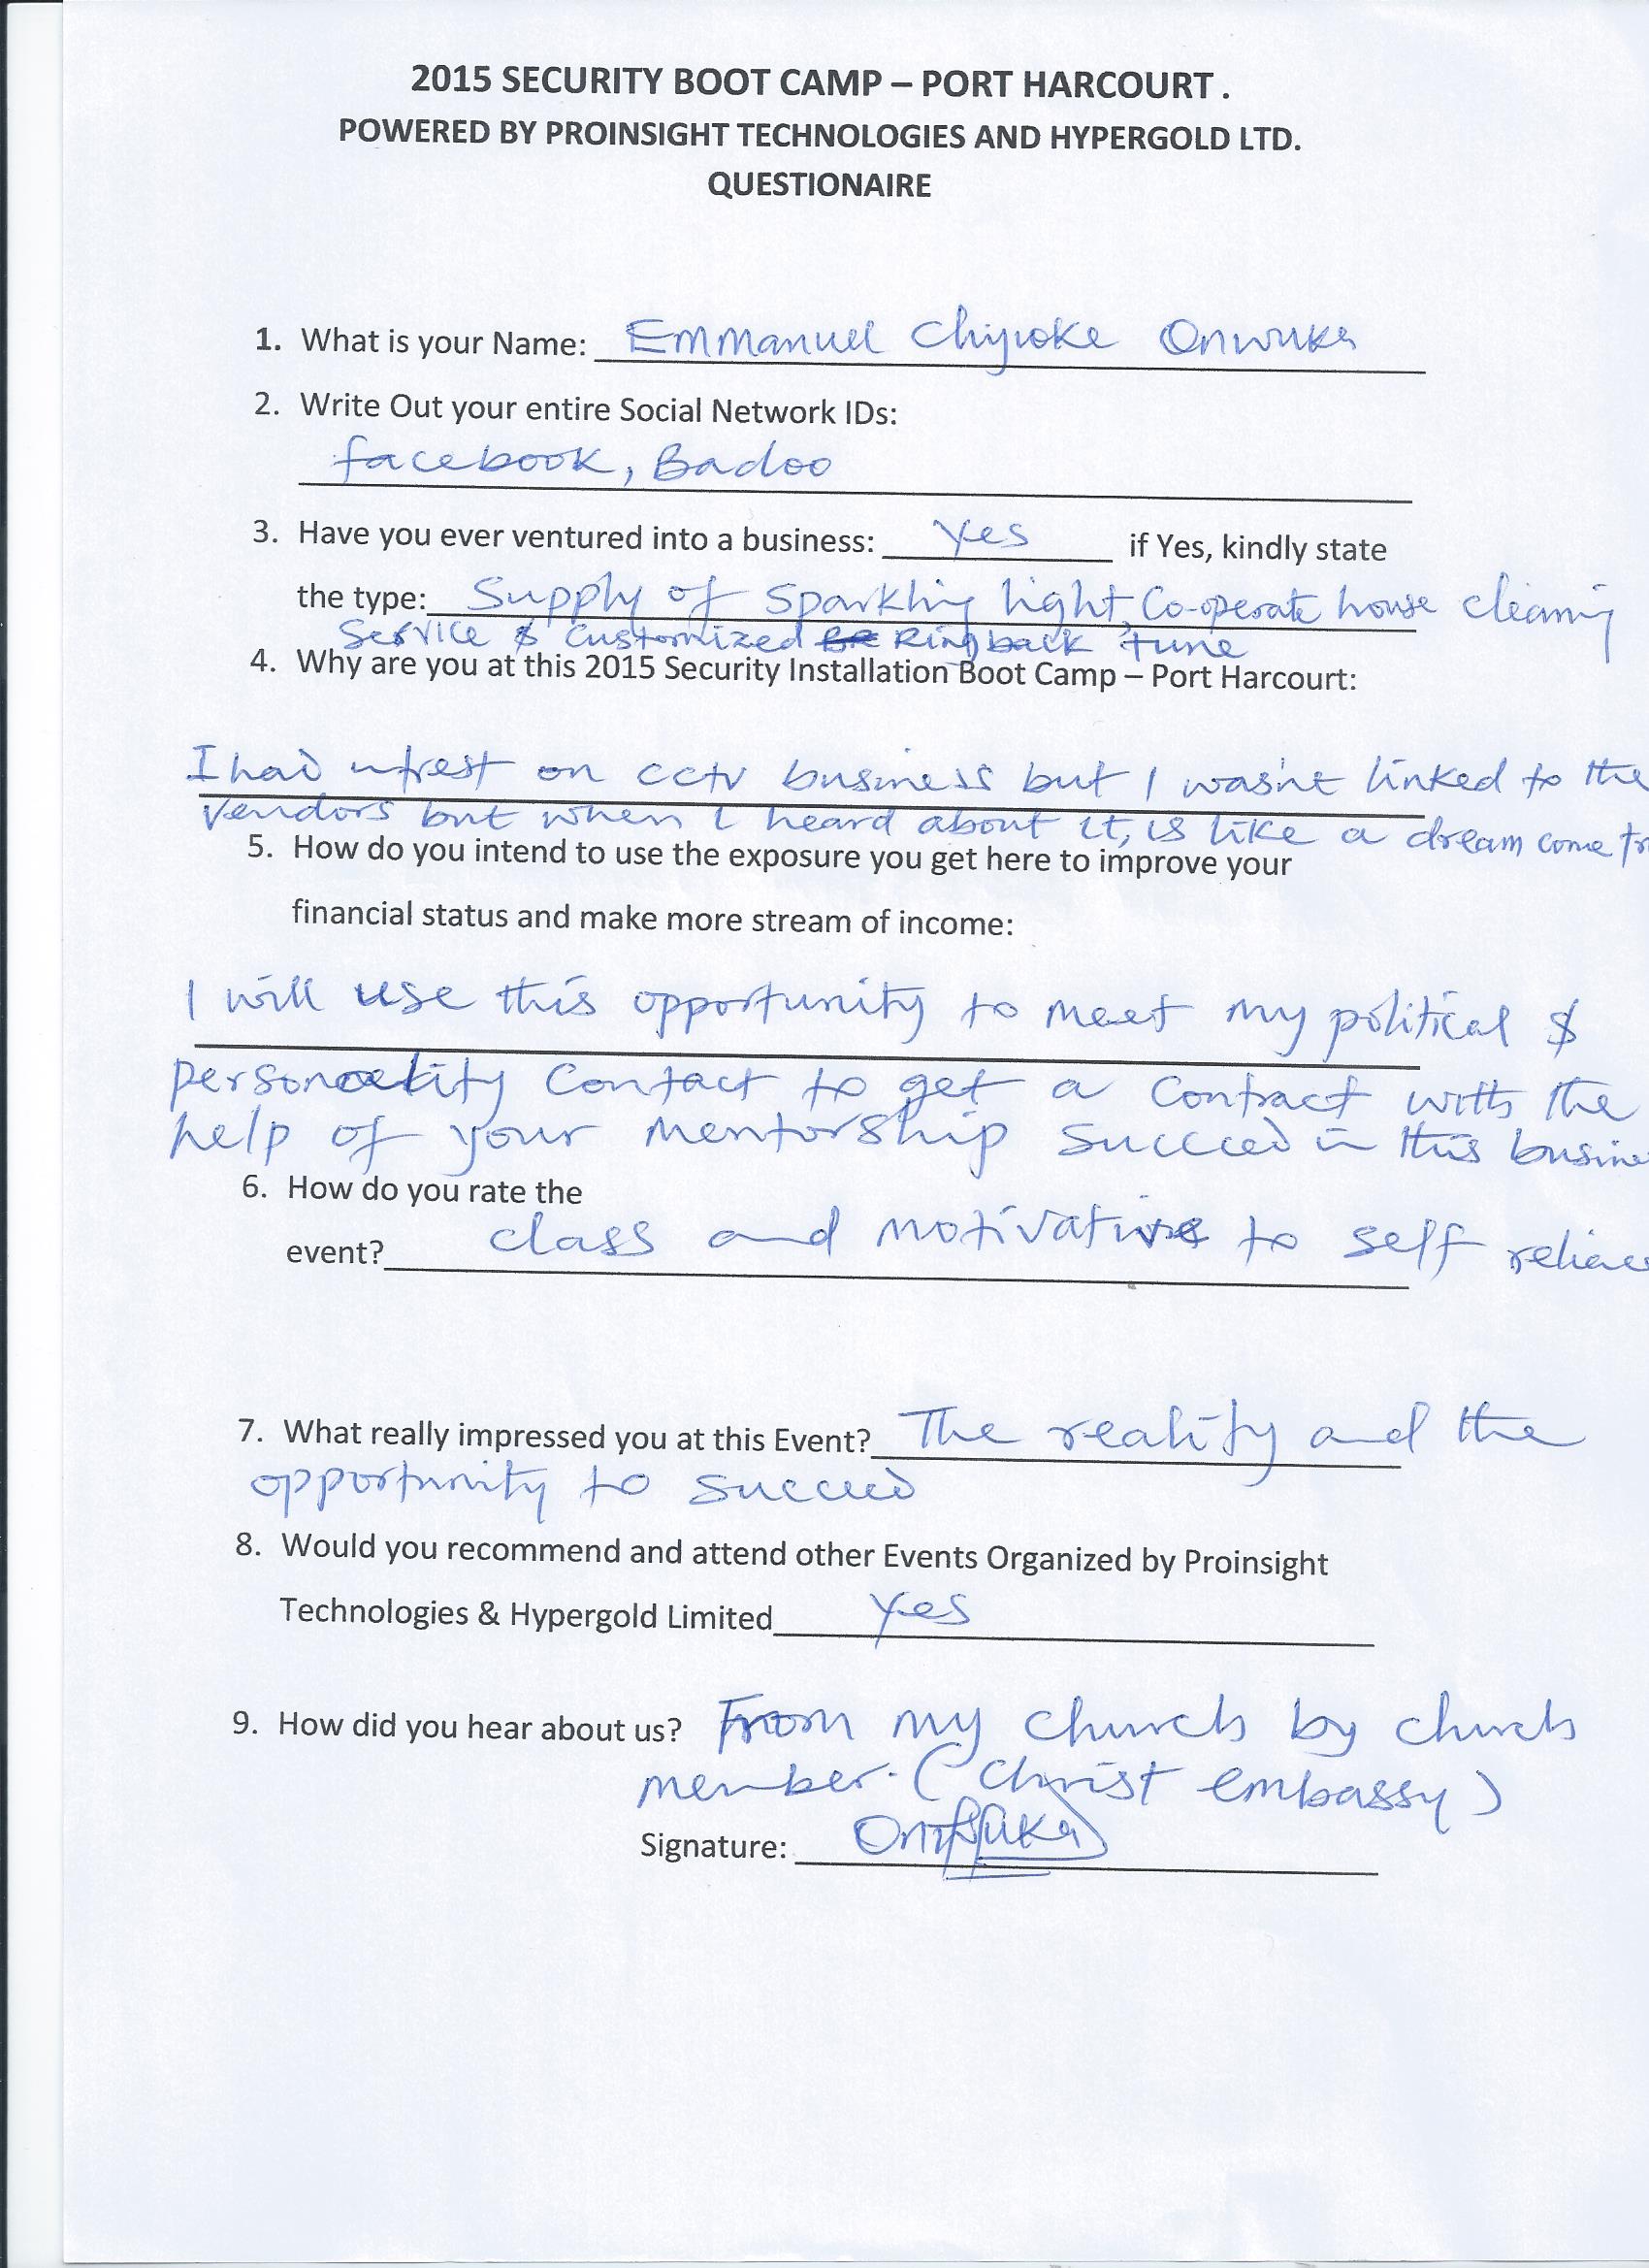 2015 SECURITY BOOT CAMP – PORT HARCOURT .
POWERED BY PROINSIGHT TECHNOLOGIES AND HYPERGOLD LTD.
QUESTIONAIRE
1. What is your Name: Emmanuel Chijioke Onwuka
2. Write Out your entire Social Network IDs:
facebook, Badoo
3. Have you ever ventured into a business: Yes if Yes, kindly state
the type: Supply of Sparkling light, Co-operate house cleaning
Service & Customized Ring back tune
4. Why are you at this 2015 Security Installation Boot Camp – Port Harcourt:
I had on cctv business but I wasn't linked to the
Vendors but when I heard about it, is like a dream come
5. How do you intend to use the exposure you get here to improve your
financial status and make more stream of income:
I will use this opportunity to meet my political &
personality Contact to get a Contract with the
help of your Mentorship Succeed in this
6. How do you rate the
event? class and motivative to self
7. What really impressed you at this Event? The reality and the
opportunity to succeed
8. Would you recommend and attend other Events Organized by Proinsight
Technologies & Hypergold Limited Yes
9. How did you hear about us? From my church by church
member. (Christ embassy)
Signature: Onwuka